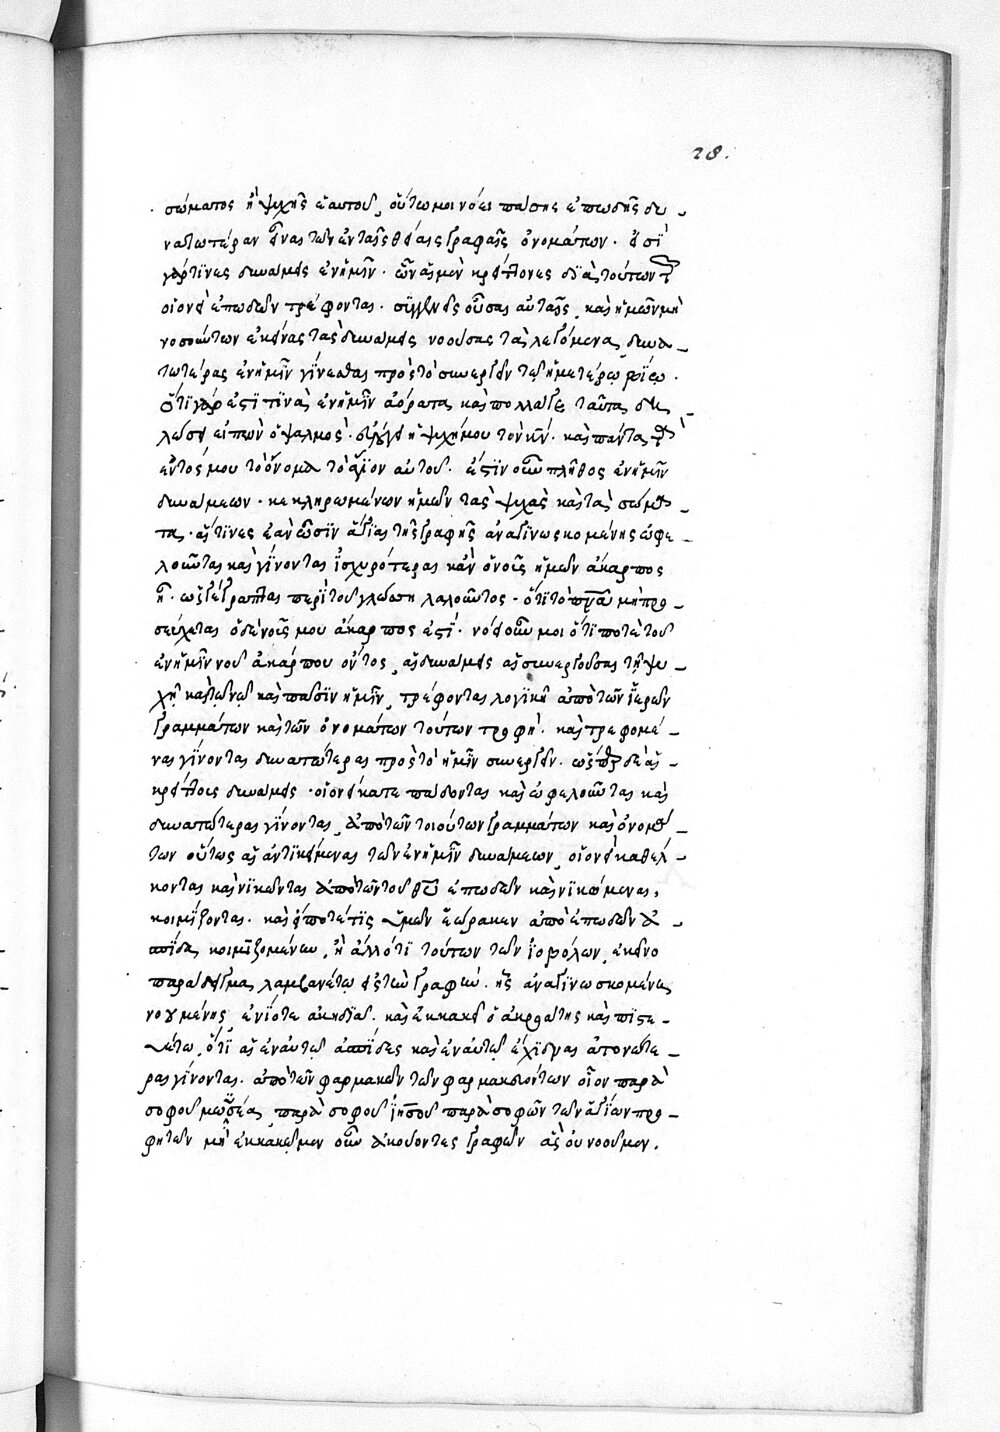 28.
σώματος ἢ ψυχῆς ἑαυτοῦ, οὕτω μοι νόει πάσης ἐπωδῆς δυ-
νατωτέραν εἶναι τῶν ἐν ταῖς θείαις γραφαῖς ὀνομάτων. εἰσὶ
γάρ τινες δυνάμεις ἐν ἡμῖν. ὧν αἱ μὲν κρείττονες διὰ τούτων τῶν
οἱονεὶ ἐπωδῶν τρέφονται. συγγενεῖς οὖσαι αὐταῖς, καὶ ἡμῶν μὴ
νοούντων ἐκείνας τὰς δυνάμεις νοούσας τὰ λεγόμενα, δυνα-
τωτέρας ἐν ἡμῖν γίνεσθαι πρὸς τὸ συνεργεῖν τῷ ἡμετέρῳ βίῳ.
ὅτι γάρ ἐστί τινα ἐν ἡμῖν ἀόρατα καὶ πολλά γε ταῦτα δη-
λώσει εἰπὼν ὁ ψαλμὸς. εὐλόγει ἡ ψυχή μου τὸν κν. καὶ πάντα τὰ
ἐντός μου τὸ ὄνομα τὸ ἅγιον αὐτοῦ. ἔστιν οὖν πλῆθος ἐν ἡμῖν
δυνάμεων. κεκληρωμένων ἡμῶν τὰς ψυχὰς καὶ τὰ σώμα-
τα. αἵτινες ἐὰν ὦσιν ἅγιαι τῆς γραφῆς ἀναγινωσκομένης ὠφε
λοῦνται καὶ γίνονται ἰσχυρότεραι κἂν ὁ νοῦς ἡμῶν ἄκαρπος
ᾖ. ὡς γέγραπται περὶ τοῦ γλώσσῃ λαλοῦντος. ὅτι τὸ πνα μὴ προ-
σεύχεται ὁ δὲ νοῦς μου ἄκαρπός ἐστι. νόει οὖν μοι ὅτι ποτὲ τοῦ
ἐν ἡμῖν νοῦ ἀκάρπου ὄντος, αἱ δυνάμεις αἱ συνεργοῦσαι τῇ ψυ-
χῇ καὶ τῷ νῷ καὶ πᾶσιν ἡμῖν, τρέφονται λογικῇ ἀπὸ τῶν ἱερῶν
γραμμάτων καὶ τῶν ὀνομάτων τούτων τροφῇ. καὶ τρεφόμε-
ναι γίνονται δυνατώτεραι πρὸς τὸ ἡμῖν συνεργεῖν. ὥσπερ δὲ αἱ
κρείττους δυνάμεις. οἱονεὶ κατεπᾴδονται καὶ ὠφελοῦνται καὶ
δυνατώτεραι γίνονται, ἀπὸ τῶν τοιούτων γραμμάτων καὶ ὀνομά-
των οὕτως αἱ ἀντικείμεναι τῶν ἐν ἡμῖν δυνάμεων, οἱονεὶ καθέλ-
κονται καὶ νικῶνται ἀπὸ τῶν τοῦ θυ ἐπωδῶν καὶ νικώμεναι,
κοιμίζονται. καὶ εἴ ποτέ τις ὑμῶν ἑώρακεν ἀπὸ ἐπωδῶν ἀ-
σπίδα κοιμιζομένην, ἢ ἄλλό τι τούτων τῶν ἰοβόλων, ἐκεῖνο
παράδειγμα λαμβανέτω εἰς τὴν γραφήν. ἧς ἀναγινωσκομένης
νουμένης ἐνίοτε ἀκηδιᾷ. καὶ ἐκκακεῖ ὁ ἀκροατής καὶ πιστε-
υέτω, ὅτι αἱ ἐν αὐτῷ ἀσπίδες καὶ ἐν αὐτῷ ἔχιδναι ἀτονώτε-
ραι γίνονται. ἀπὸ τῶν φαρμάκων τῶν φαρμακευόντων οἷον παρὰ
σοφοῦ μωσέα, παρὰ σοφοῦ ἰησοῦ παρὰ σοφῶν τῶν ἁγίων προ-
φητῶν μὴ ἐκκακῶμεν οὖν ἀκούοντες γραφῶν ἃς οὐ νοοῦμεν.